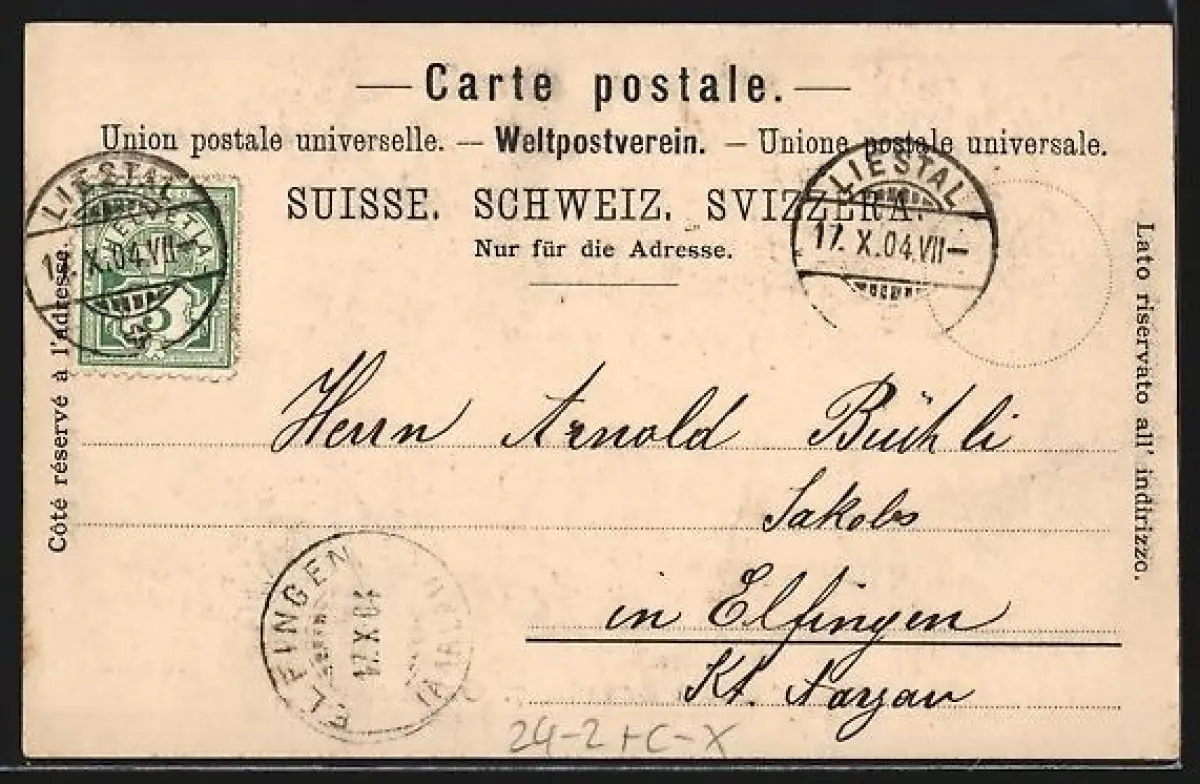 — Carte postale. —
Union postale universelle. — Weltpostverein. — Unione postale universale.
SUISSE. SCHWEIZ. SVIZZERA.
Nur für die Adresse.
LIESTAL
17. X.04.VII—
HELVETIA
5
LIESTAL
17. X.04.VII—
Côté réservé à l'adresse.
Lato riservato all' indirizzo.
Herrn Arnold Büchli
Jakobs
in Elfingen
Kt. Aargau
ELFINGEN
17.X.04
24-2+C-X